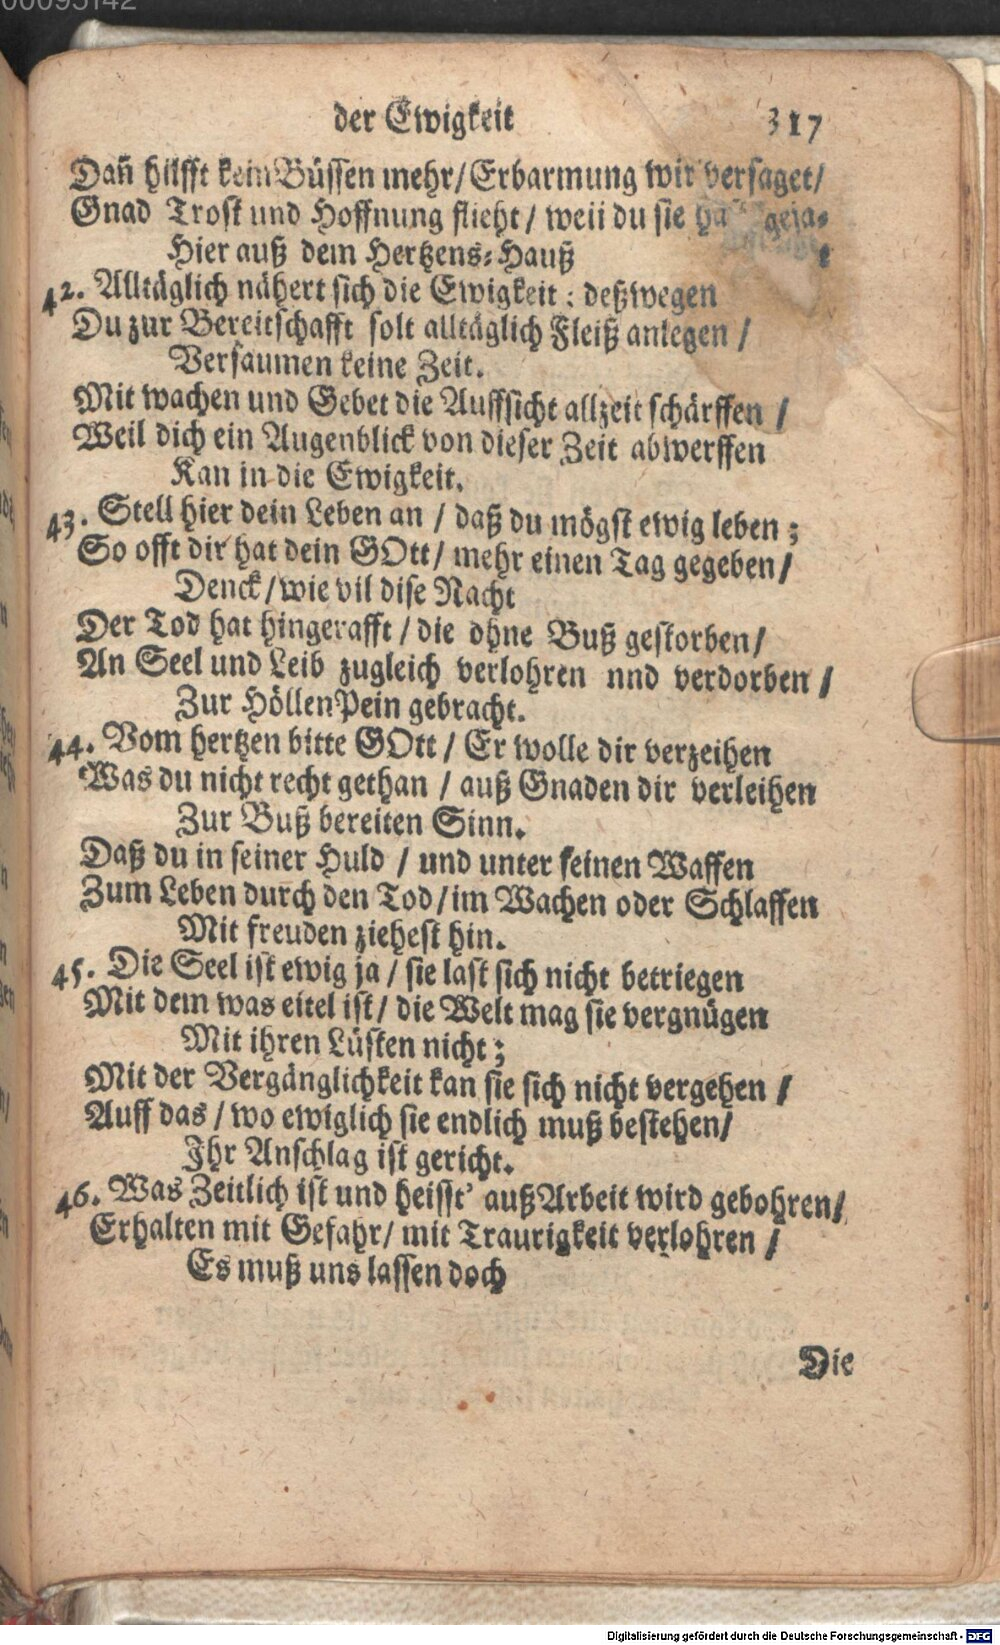 00095142
der Ewigkeit 317
Dañ hilfft kein Büssen mehr/ Erbarmung wir versaget/
Gnad Trost und Hoffnung flieht/ weii du sie geja-
Hier auß dem Hertzens-Hauß
42. Alltäglich nähert sich die Ewigkeit: deßwegen
Du zur Bereitschafft solt alltäglich Fleiß anlegen/
Versaumen keine Zeit.
Mit wachen und Gebet die Auffsicht allzeit schärffen/
Weil dich ein Augenblick von dieser Zeit abwerffen
Kan in die Ewigkeit.
43. Stell hier dein Leben an/ daß du mögst ewig leben;
So offt dir hat dein GOtt/ mehr einen Tag gegeben/
Denck/ wie vil dise Nacht
Der Tod hat hingerafft/ die ohne Buß gestorben/
An Seel und Leib zugleich verlohren nnd verdorben/
Zur HöllenPein gebracht.
44. Vom hertzen bitte GOtt/ Er wolle dir verzeihen
Was du nicht recht gethan/ auß Gnaden dir verleihen
Zur Buß bereiten Sinn.
Daß du in seiner Huld/ und unter seinen Waffen
Zum Leben durch den Tod/ im Wachen oder Schlaffen
Mit freuden ziehest hin.
45. Die Seel ist ewig ja/ sie last sich nicht betriegen
Mit dem was eitel ist/ die Welt mag sie vergnügen
Mit ihren Lüsten nicht;
Mit der Vergänglichkeit kan sie sich nicht vergehen/
Auff das/ wo ewiglich sie endlich muß bestehen/
Ihr Anschlag ist gericht.
46. Was Zeitlich ist und heisst' auß Arbeit wird gebohren/
Erhalten mit Gefahr/ mit Traurigkeit verlohren/
Es muß uns lassen doch
Die
Digitalisierung gefördert durch die Deutsche Forschungsgemeinschaft - DFG